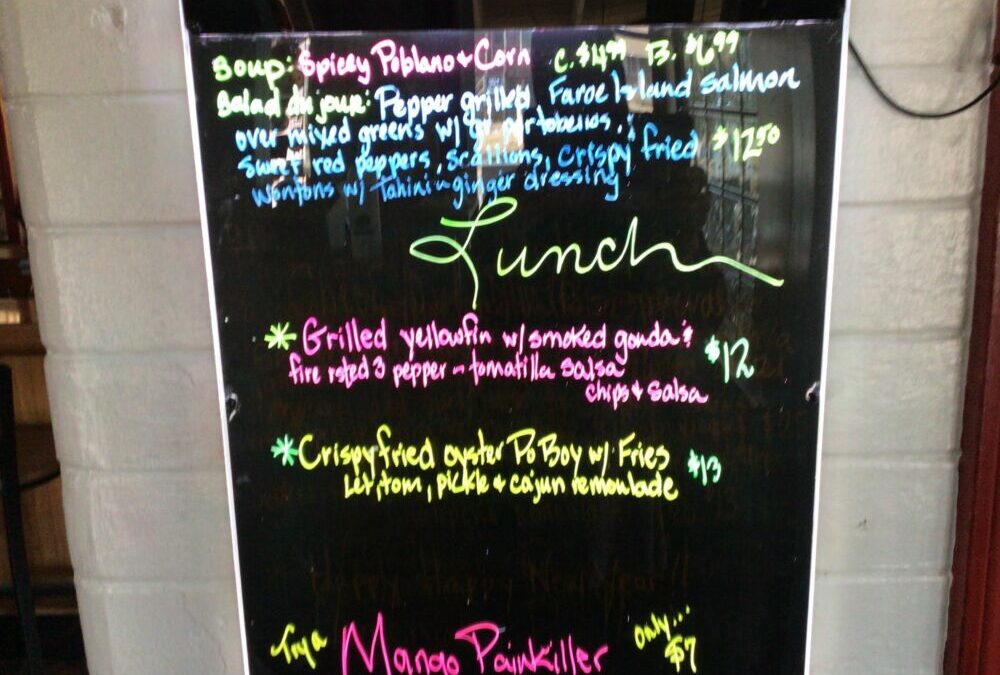 Soup: Spicey Poblano & Corn C. $4.99 B. $6.99
Salad du jour: Pepper grilled Faroe Island salmon
over mixed greens w/ gr portobellos,
Sweet red peppers, scallions, crispy fried $12.50
wontons w/ Tahini-ginger dressing
Lunch
* Grilled yellowfin w/ smoked gouda & $12
fire rsted 3 pepper - tomatilla salsa
chips & salsa
* Crispy fried oyster Po Boy w/ Fries $13
Let, tom, pickle & cajun remoulade
Happy Happy New Year!!
Try a Mango Painkiller only... $7